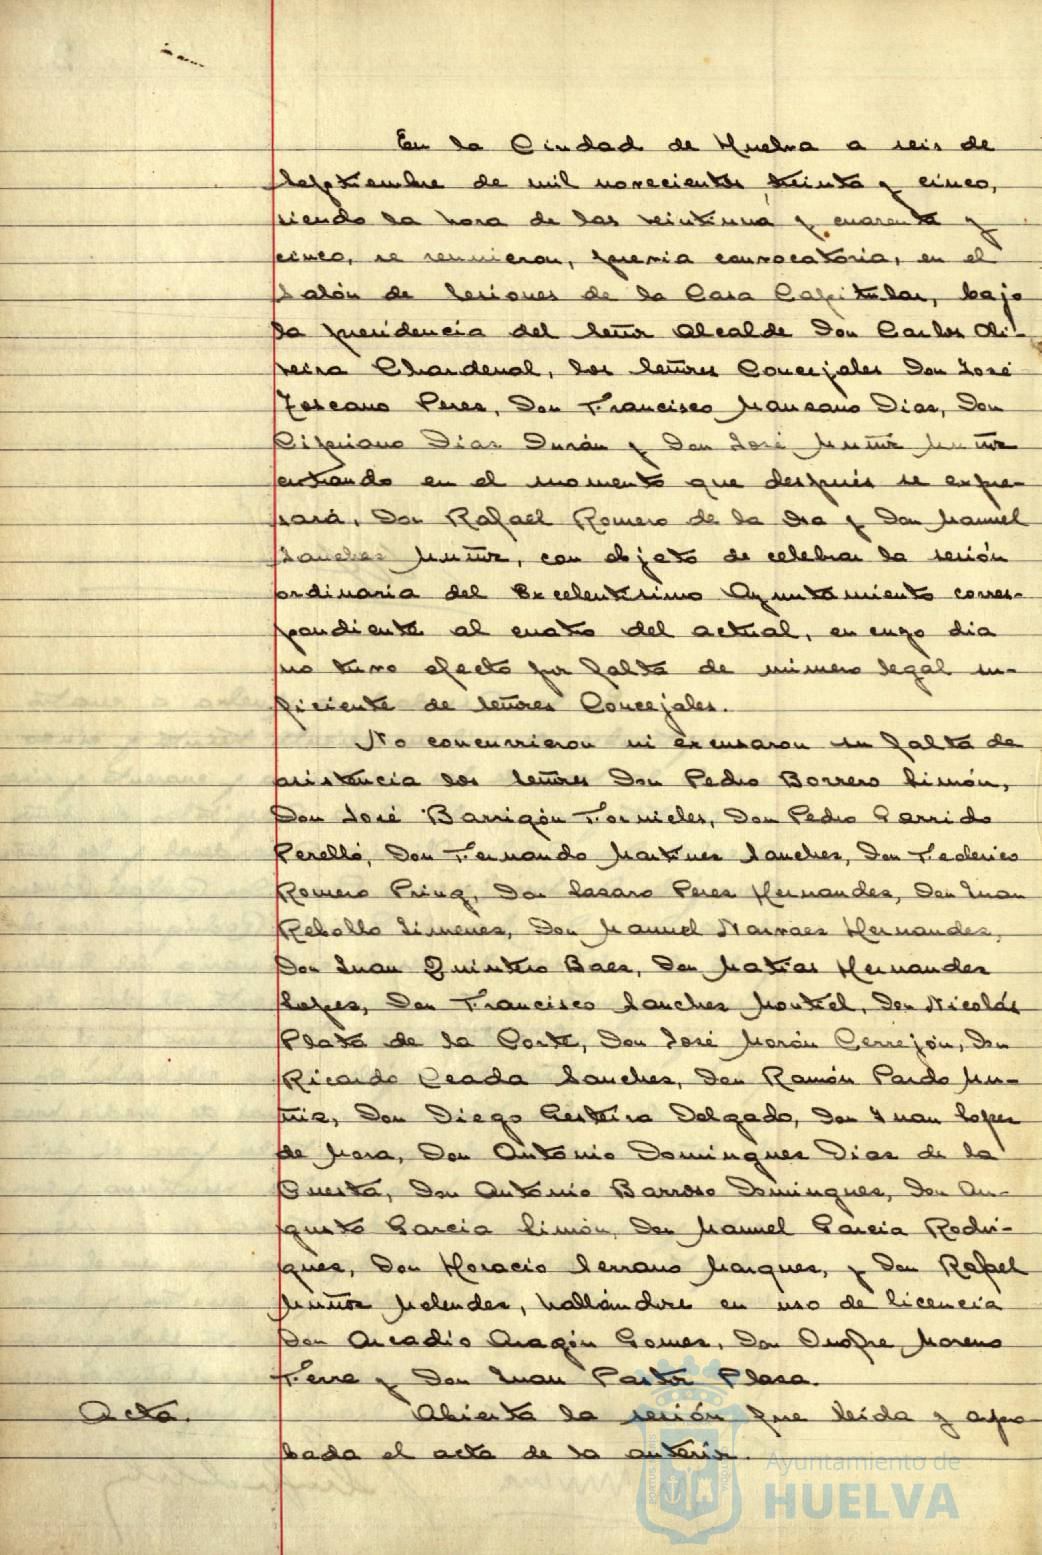 En la Ciudad de Huelva a seis de
Septiembre de mil novecientos treinta y cinco,
siendo la hora de las veintiuna y cuarenta y
cinco, se reunieron, previa convocatoria, en el
Salón de Sesiones de la Casa Capitular, bajo
la presidencia del Señor Alcalde Don Carlos Oli-
veira Chardenal, los Señores Concejales Don José
Toscano Peres, Don Francisco Manzano Dias, Don
Cipriano Dias Durán y Don José Muñiz Muñiz
entrando en el momento que después se expre-
sará, Don Rafael Romero de la Osa y Don Manuel
Sanches Muñiz, con objeto de celebrar la sesión
ordinaria del Excelentísimo Ayuntamiento corres-
pondiente al cuatro del actual, en cuyo dia
no tuvo efecto por falta de número legal su-
ficiente de Señores Concejales.
No concurrieron ni excusaron su falta de
asistencia los Señores Don Pedro Borrero Limón,
Don José Barrigón Fornieles, Don Pedro Garrido
Perelló, Don Fernando Martines Sanches, Don Federico
Romero Don Lazaro Peres Hernandes, Don Juan
Rebollo Jimenes, Don Manuel Narvaes Hernandes,
Don Juan Quintero Baes, Don Matias Hernandes
Lopes, Don Francisco Sanches Montiel, Don Nicolás
Plata de la Corte, Don José Morón Cerrejón, Don
Ricardo Ceada Sanches, Don Ramón Pardo Mu-
ñiz, Don Diego Gesteira Delgado, Don Juan Lopes
de Mora, Don Antonio Domingues Dias de la
Cuesta, Don Antonio Barroso Domingues, Don Au-
gusto Garcia Limón, Don Manuel Garcia Rodri-
gues, Don Horacio Serrano Marques, y Don Rafael
Muños Melendes, hallándose en uso de licencia
Don Arcadio Aragón Gomes, Don Onofre Moreno
Terra y Don Juan Pastor Plasa.
Acta. Abierta la sesión fue leida y apro
bada el acta de la anterior.
Ayuntamiento de
HUELVA